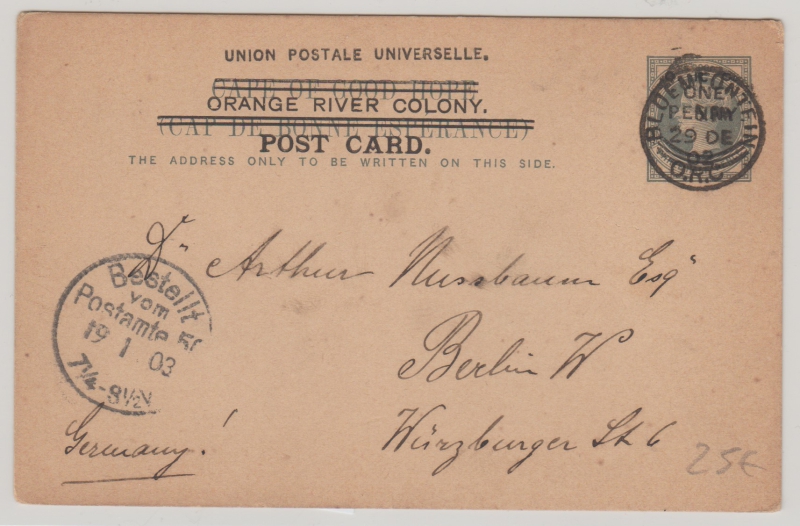 UNION POSTALE UNIVERSELLE.
CAPE OF GOOD HOPE
ORANGE RIVER COLONY.
(CAP DE BONNE ESPERANCE)
POST CARD.
THE ADDRESS ONLY TO BE WRITTEN ON THIS SIDE.
ONE
PENNY
BLOEMFONTEIN
29 DE
02
O.R.C.
Dr Arthur Nussbaum Esq
Berlin W
Würzburger St 6
Germany!
Bestellt
vom
Postamte 50
19 1 03
7¼-8½N
25€